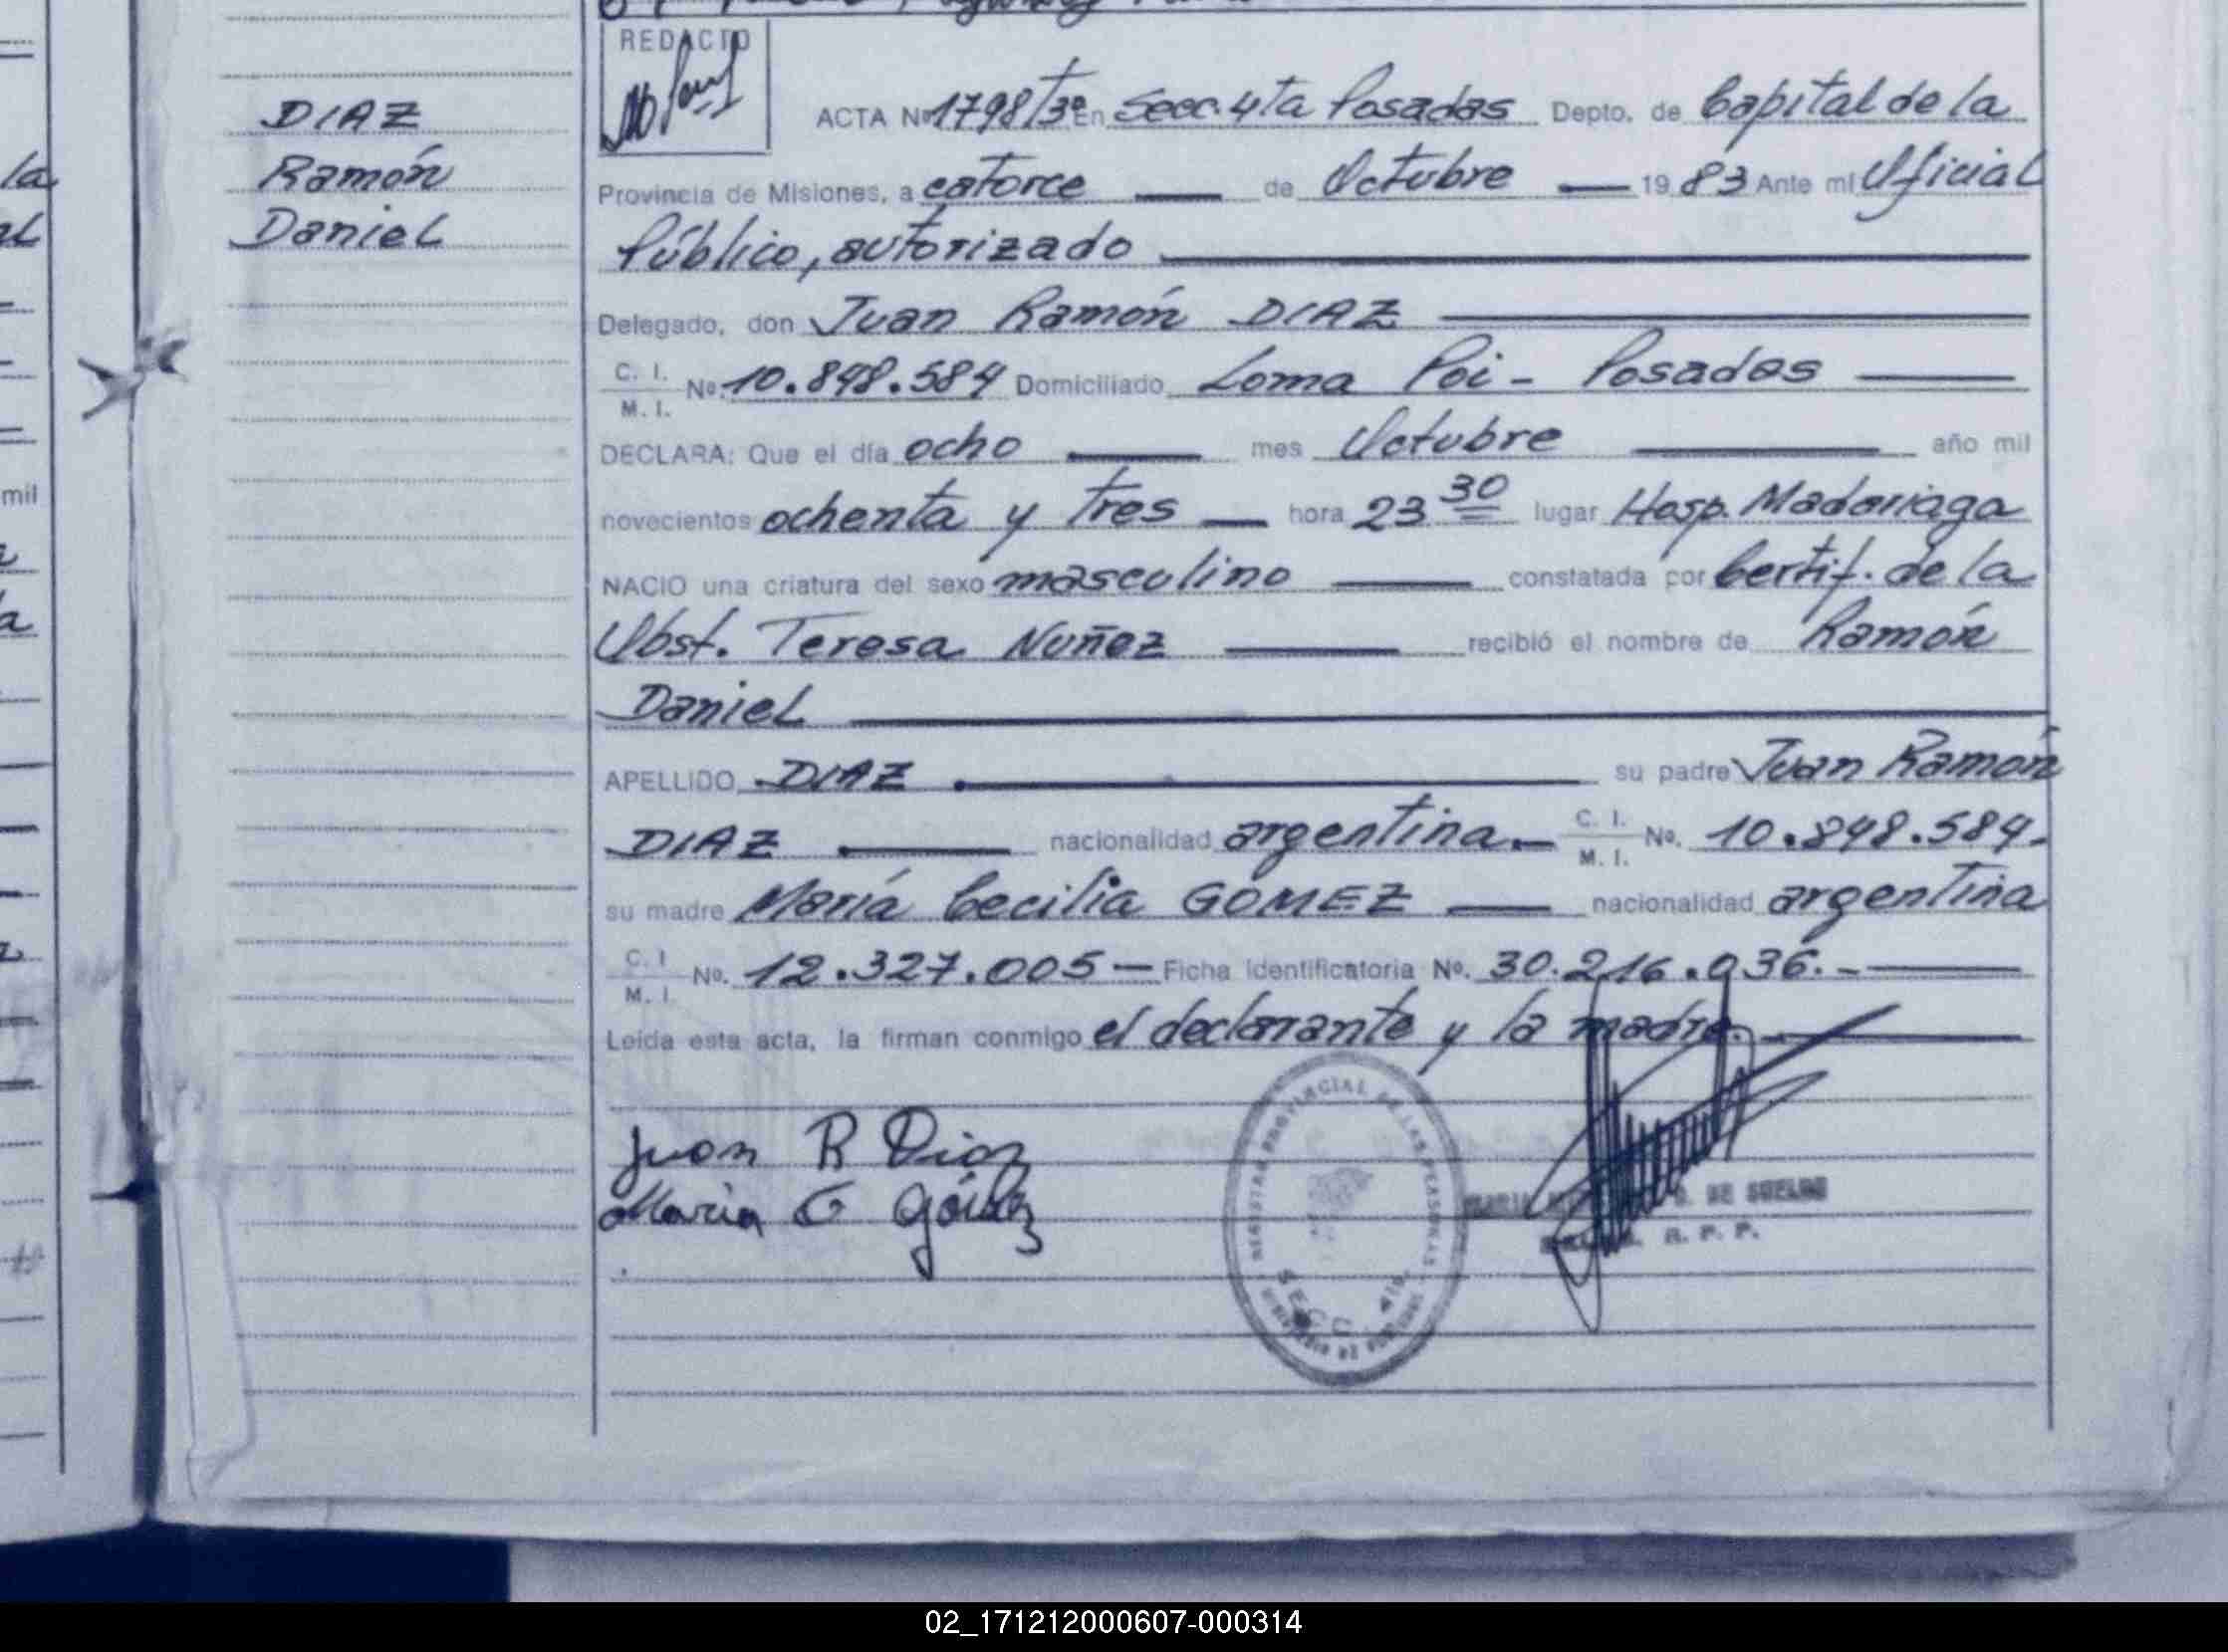 DIAZ
Ramón
Daniel
REDACTO
ACTA Nº 1798/Tº3º En Secc. 4ta Posadas Depto. de Capital de la
Provincia de Misiones, a catorce de Octubre 1983 Ante mí Oficial
Público, autorizado
Delegado, don Juan Ramón DIAZ
C. I. M. I. Nº. 10.848.584 Domiciliado Loma Poi - Posadas
DECLARA: Que el día ocho mes Octubre año mil
novecientos ochenta y tres hora 23 30 lugar Hosp. Madariaga
NACIO una criatura del sexo masculino constatada por Certif. de la
Obst. Teresa Nuñez recibió el nombre de Ramón
Daniel
APELLIDO DIAZ su padre Juan Ramón
DIAZ nacionalidad argentina.- C. I. M. I. Nº. 10.848.584.
su madre María Cecilia GOMEZ nacionalidad argentina
C. I M. I. Nº. 12.327.005 - Ficha Identificatoria Nº. 30.216.036.-
Leída esta acta, la firman conmigo el declarante y la madre.
Juan R Diaz
Maria C Gómez
REGISTRO PROVINCIAL DE LAS PERSONAS
DE SUELDO
R. P. P.
la
al
mil
a
02_171212000607-000314